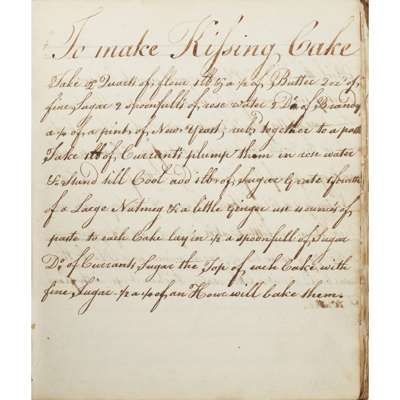 To make Kissing Cake
Take 2 Quarts of, flour 1lb & a ½ of, Butter 2 oz of,
fine Sugar 2 spoonfulls of, rose water 2 Do of, Brandy
a ½ of, a pint of, New Yeast, rub together to a paste
Take 1lb of, Currants plump them in rose water
& Stand till Cool add 1lb of, Sugar Grate
of a Large Nutmeg & a little Ginger use 4 ounces of,
paste to each Cake lay in ½ a spoonfull of, Sugar
Do of Currants, Sugar the Top of, each Cake with
fine, Sugar. ½ a of, an Hour will bake them.